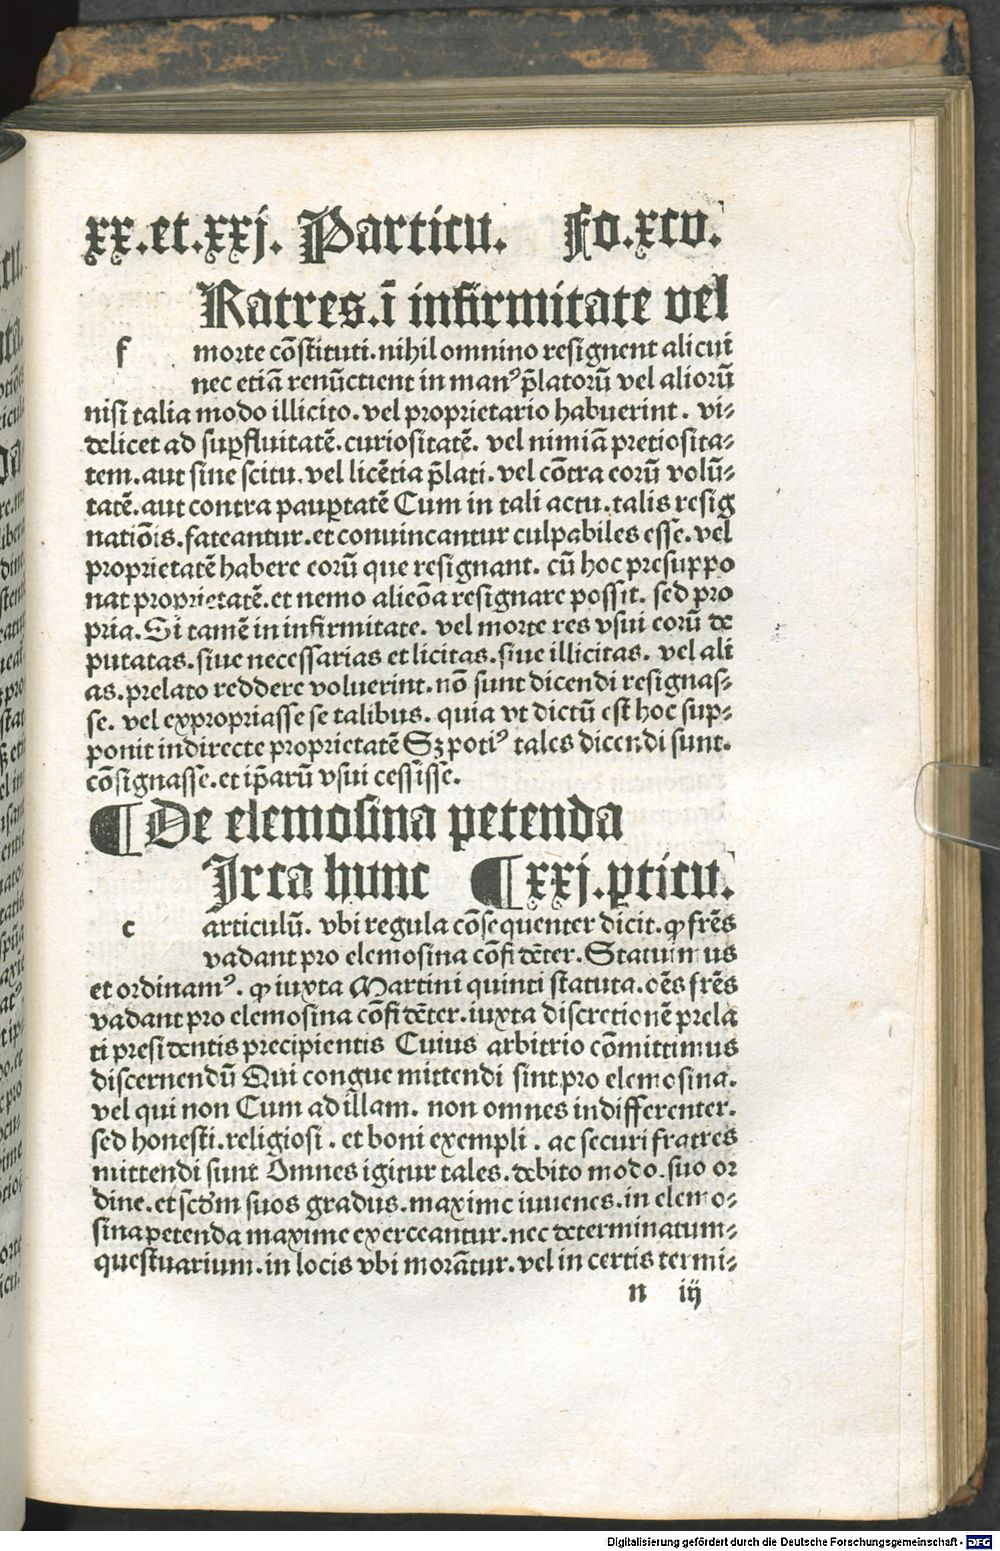 xx.et.xxj. Particu. Fo.xcv.
Ratres.ī infirmitate vel
f morte cōstituti.nihil omnino resignent alicui
nec etiā renūctient in manꝰ p̄latorū vel aliorū
nisi talia modo illicito. vel proprietario habuerint. vi⸗
delicet ad suꝑfluitatē.curiositatē. vel nimiā pretiosita⸗
tem.aut sine scitu.vel licētia p̄lati.vel cōtra eorū volū⸗
tatē.aut contra pauꝑtatē Cum in tali actu.talis resig
natiōis.fateantur.et conuincantur culpabiles esse.vel
proprietatē habere eorū que resignant. cū hoc presuppo
nat proprietatē.et nemo alieōa resignare possit. sed pro
pria.Si tamē in infirmitate. vel morte res vsui eorū de
putatas.siue necessarias et licitas.siue illicitas. vel ali
as.prelato reddere voluerint.nō sunt dicendi resignas⸗
se. vel expropriasse se talibus. quia vt dictū est hoc sup⸗
ponit indirecte proprietatē Sꝫ potiꝰ tales dicendi sunt.
cōsignasse.et ip̄arū vsui cessisse.
¶ De elemosina petenda
Irca hunc ¶ xxj.ꝑticu.
c articulū. vbi regula cōsequenter dicit.ꝙ frēs
vadant pro elemosina cōfidēter.Statuimus
et ordinamꝰ. ꝙ iuxta Martini quinti statuta.oēs frēs
vadant pro elemosina cōfidēter.iuxta discretionē prela
ti presidentis precipientis Cuius arbitrio cōmittimus
discernendū Qui congue mittendi sint pro elemosina.
vel qui non Cum ad illam. non omnes indifferenter.
sed honesti.religiosi. et boni exempli. ac securi fratres
mittendi sunt Omnes igitur tales.debito modo.suo or
dine.et scd̄m suos gradus.maxime iuuenes.in elemo⸗
sina petenda maxime exerceantur.nec determinatum⸗
questuarium.in locis vbi morātur.vel in certis termi⸗
n iij
Digitalisierung gefördert durch die Deutsche Forschungsgemeinschaft - DFG